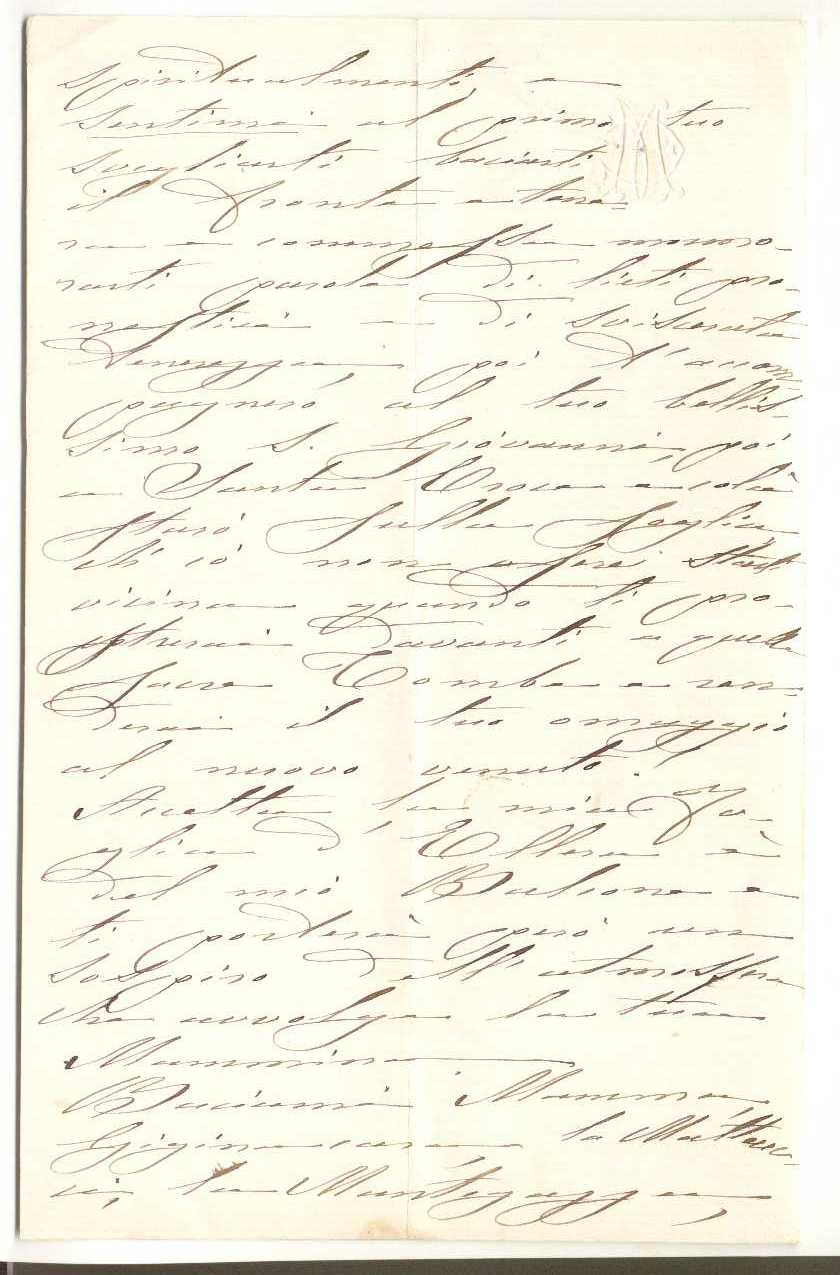 spiritualmente, e
sentimi al primo tuo
svegliarti baciarti
il fronte e tene-
ra e commossa mormo-
rarti parole di lieti pro-
nostici e di sviscerata
tenerezza, poi t'accom-
pagnerò al tuo bellis-
simo S. Giovanni, poi
a Santa Croce e colà
starò sulla soglia
ch'io non oserei starti
vicina quando ti pro-
strerai davanti a quella
sacra Tomba e ren-
derai il tuo omaggio
al nuovo venuto!
Accetta la mia fo-
glia d'Ellera è
del mio Balcone e
ti porterà però un
sospiro dell'atmosfera
che avvolge la tua
Mammina
Baciami Mamma,
Gigina cara, la Matteuc-
ci, la Mantegazza,